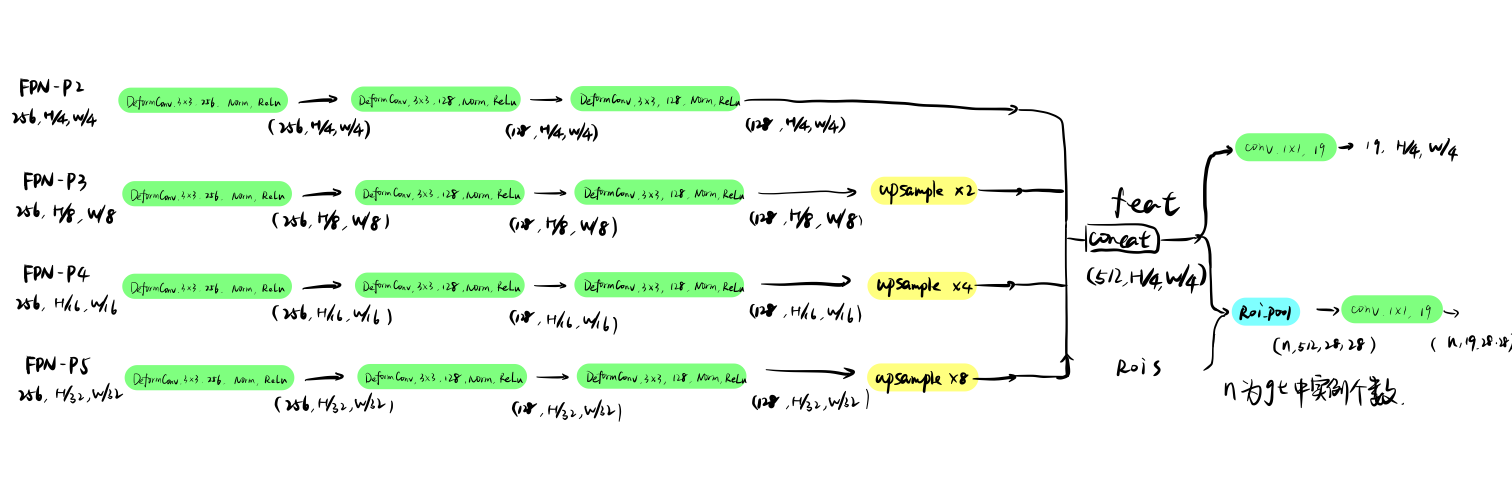 FPN-P2
256, H/4, W/4
DeformConv, 3x3, 256, Norm, ReLu
(256, H/4, W/4)
DeformConv, 3x3, 128, Norm, ReLu
(128, H/4, W/4)
DeformConv, 3x3, 128, Norm, ReLu
(128, H/4, W/4)
FPN-P3
256, H/8, W/8
DeformConv, 3x3, 256, Norm, ReLu
(256, H/8, W/8)
DeformConv, 3x3, 128, Norm, ReLu
(128, H/8, W/8)
DeformConv, 3x3, 128, Norm, ReLu
(128, H/8, W/8)
upsample x2
FPN-P4
256, H/16, W/16
DeformConv, 3x3, 256, Norm, ReLu
(256, H/16, W/16)
DeformConv, 3x3, 128, Norm, ReLu
(128, H/16, W/16)
DeformConv, 3x3, 128, Norm, ReLu
(128, H/16, W/16)
upsample x4
FPN-P5
256, H/32, W/32
DeformConv, 3x3, 256, Norm, ReLu
(256, H/32, W/32)
DeformConv, 3x3, 128, Norm, ReLu
(128, H/32, W/32)
DeformConv, 3x3, 128, Norm, ReLu
(128, H/32, W/32)
upsample x8
feat
concat
(512, H/4, W/4)
conv, 1x1, 19
19, H/4, W/4
Rois
Roi_pool
(n, 512, 28, 28)
conv, 1x1, 19
(n, 19, 28, 28)
n为gt中实例个数.